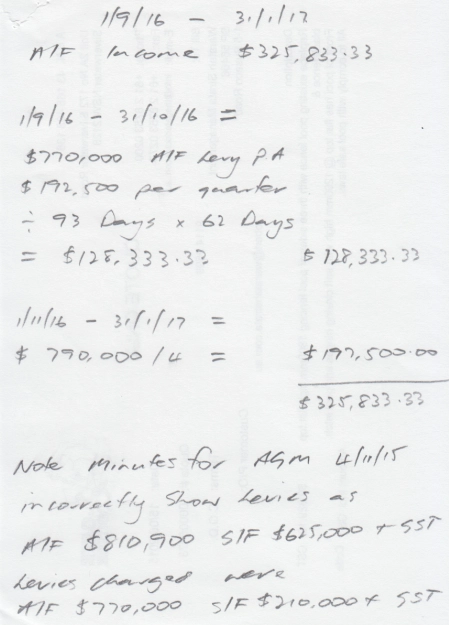 1/9/16 - 31/1/17
A/F Income $325,833.33
1/9/16 - 31/10/16 =
$770,000 A/F Levy PA
$192,500 per quarter
÷ 93 Days x 62 Days
= $128,333.33 $128,333.33
1/11/16 - 31/1/17 =
$790,000/4 = $197,500.00
$325,833.33
Note Minutes for AGM 4/11/15
incorrectly show levies as
A/F $810,900 S/F $625,000 + GST
Levies charged were
A/F $770,000 S/F $210,000 + GST